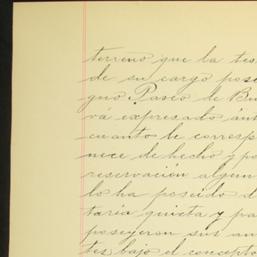 terreno que la tes
de su cargo pose
guo Paseo de Bu
vá expresado ánt
cuanto le corresp
nece de hecho y po
reservacion algun
lo ha poseido d
taria quieta y pa
poseyeron sus an
tes bajo el concepto